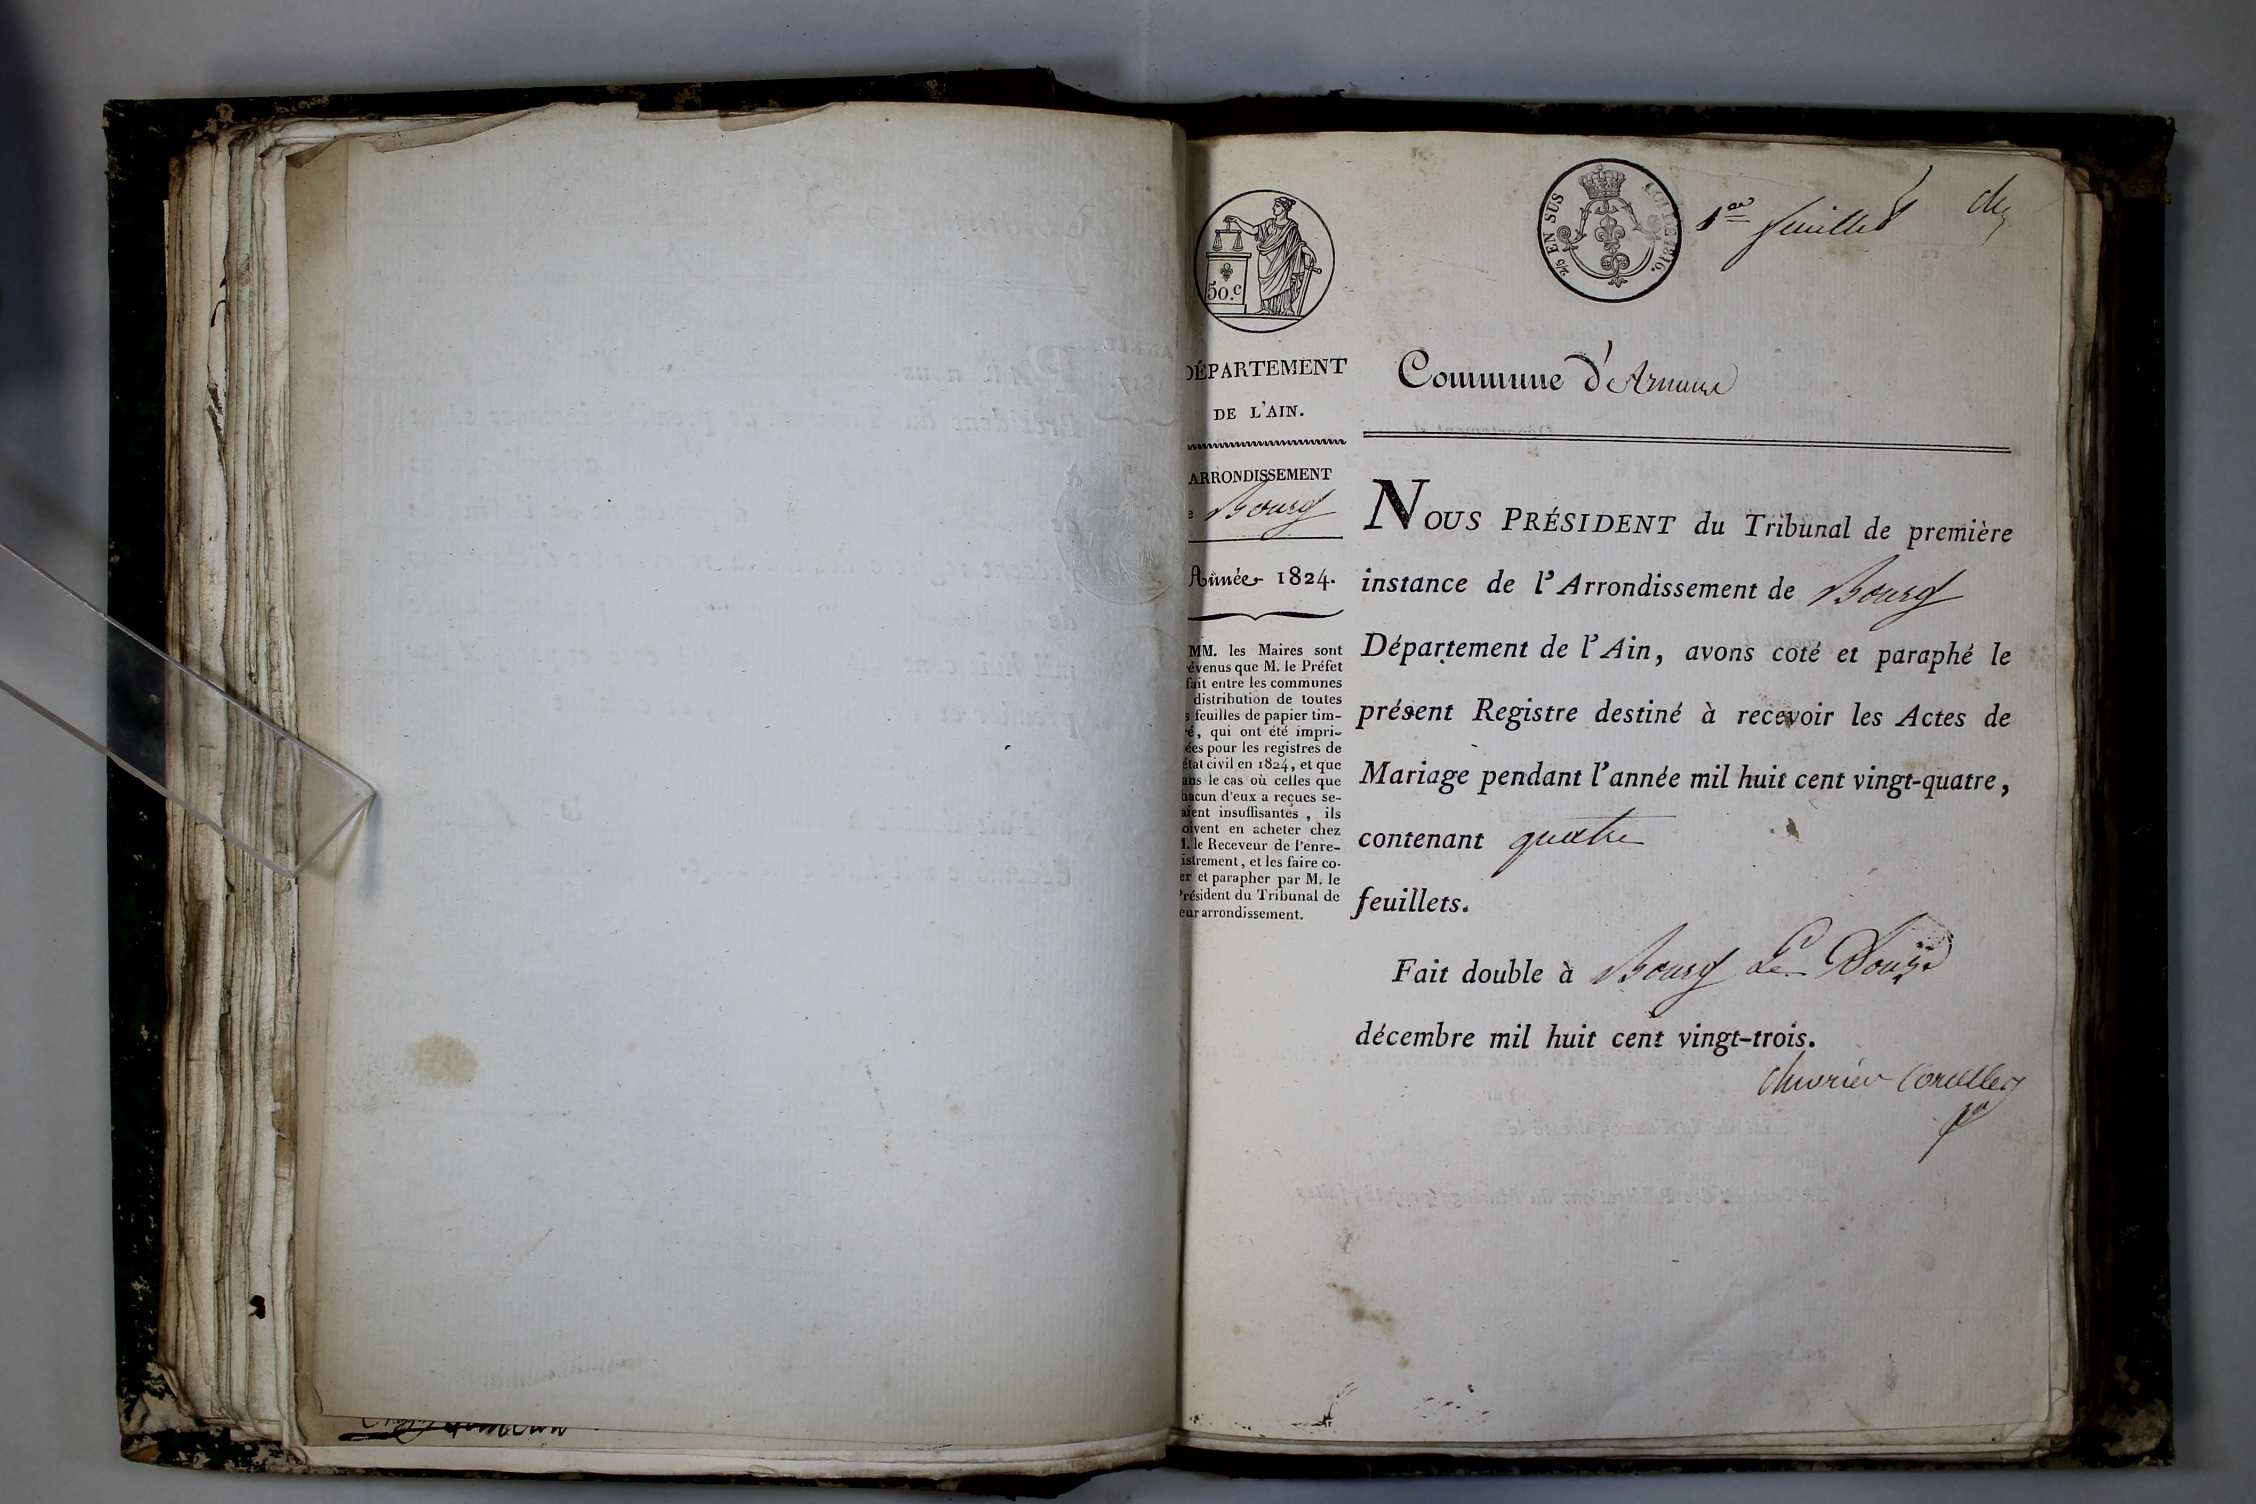 50.c
2/5 EN SUS
LOI DE 1816.
1er feuillet
DÉPARTEMENT
DE L'AIN.
ARRONDISSEMENT
e Bourg
Année 1824.
MM. les Maires sont
évenus que M. le Préfet
fait entre les communes
distribution de toutes
s feuilles de papier tim-
é, qui ont été impri-
ées pour les registres de
état civil en 1824, et que
ans le cas où celles que
hacun d'eux a reçues se-
aient insuffisantes, ils
oivent en acheter chez
M. le Receveur de l'enre-
istrement, et les faire co-
er et parapher par M. le
Président du Tribunal de
eur arrondissement.
Commune d'
NOUS PRÉSIDENT du Tribunal de première
instance de l'Arrondissement de Bourg
Département de l'Ain, avons coté et paraphé le
présent Registre destiné à recevoir les Actes de
Mariage pendant l'année mil huit cent vingt-quatre,
contenant quatre
feuillets.
Fait double à Bourg Le Douze
décembre mil huit cent vingt-trois.